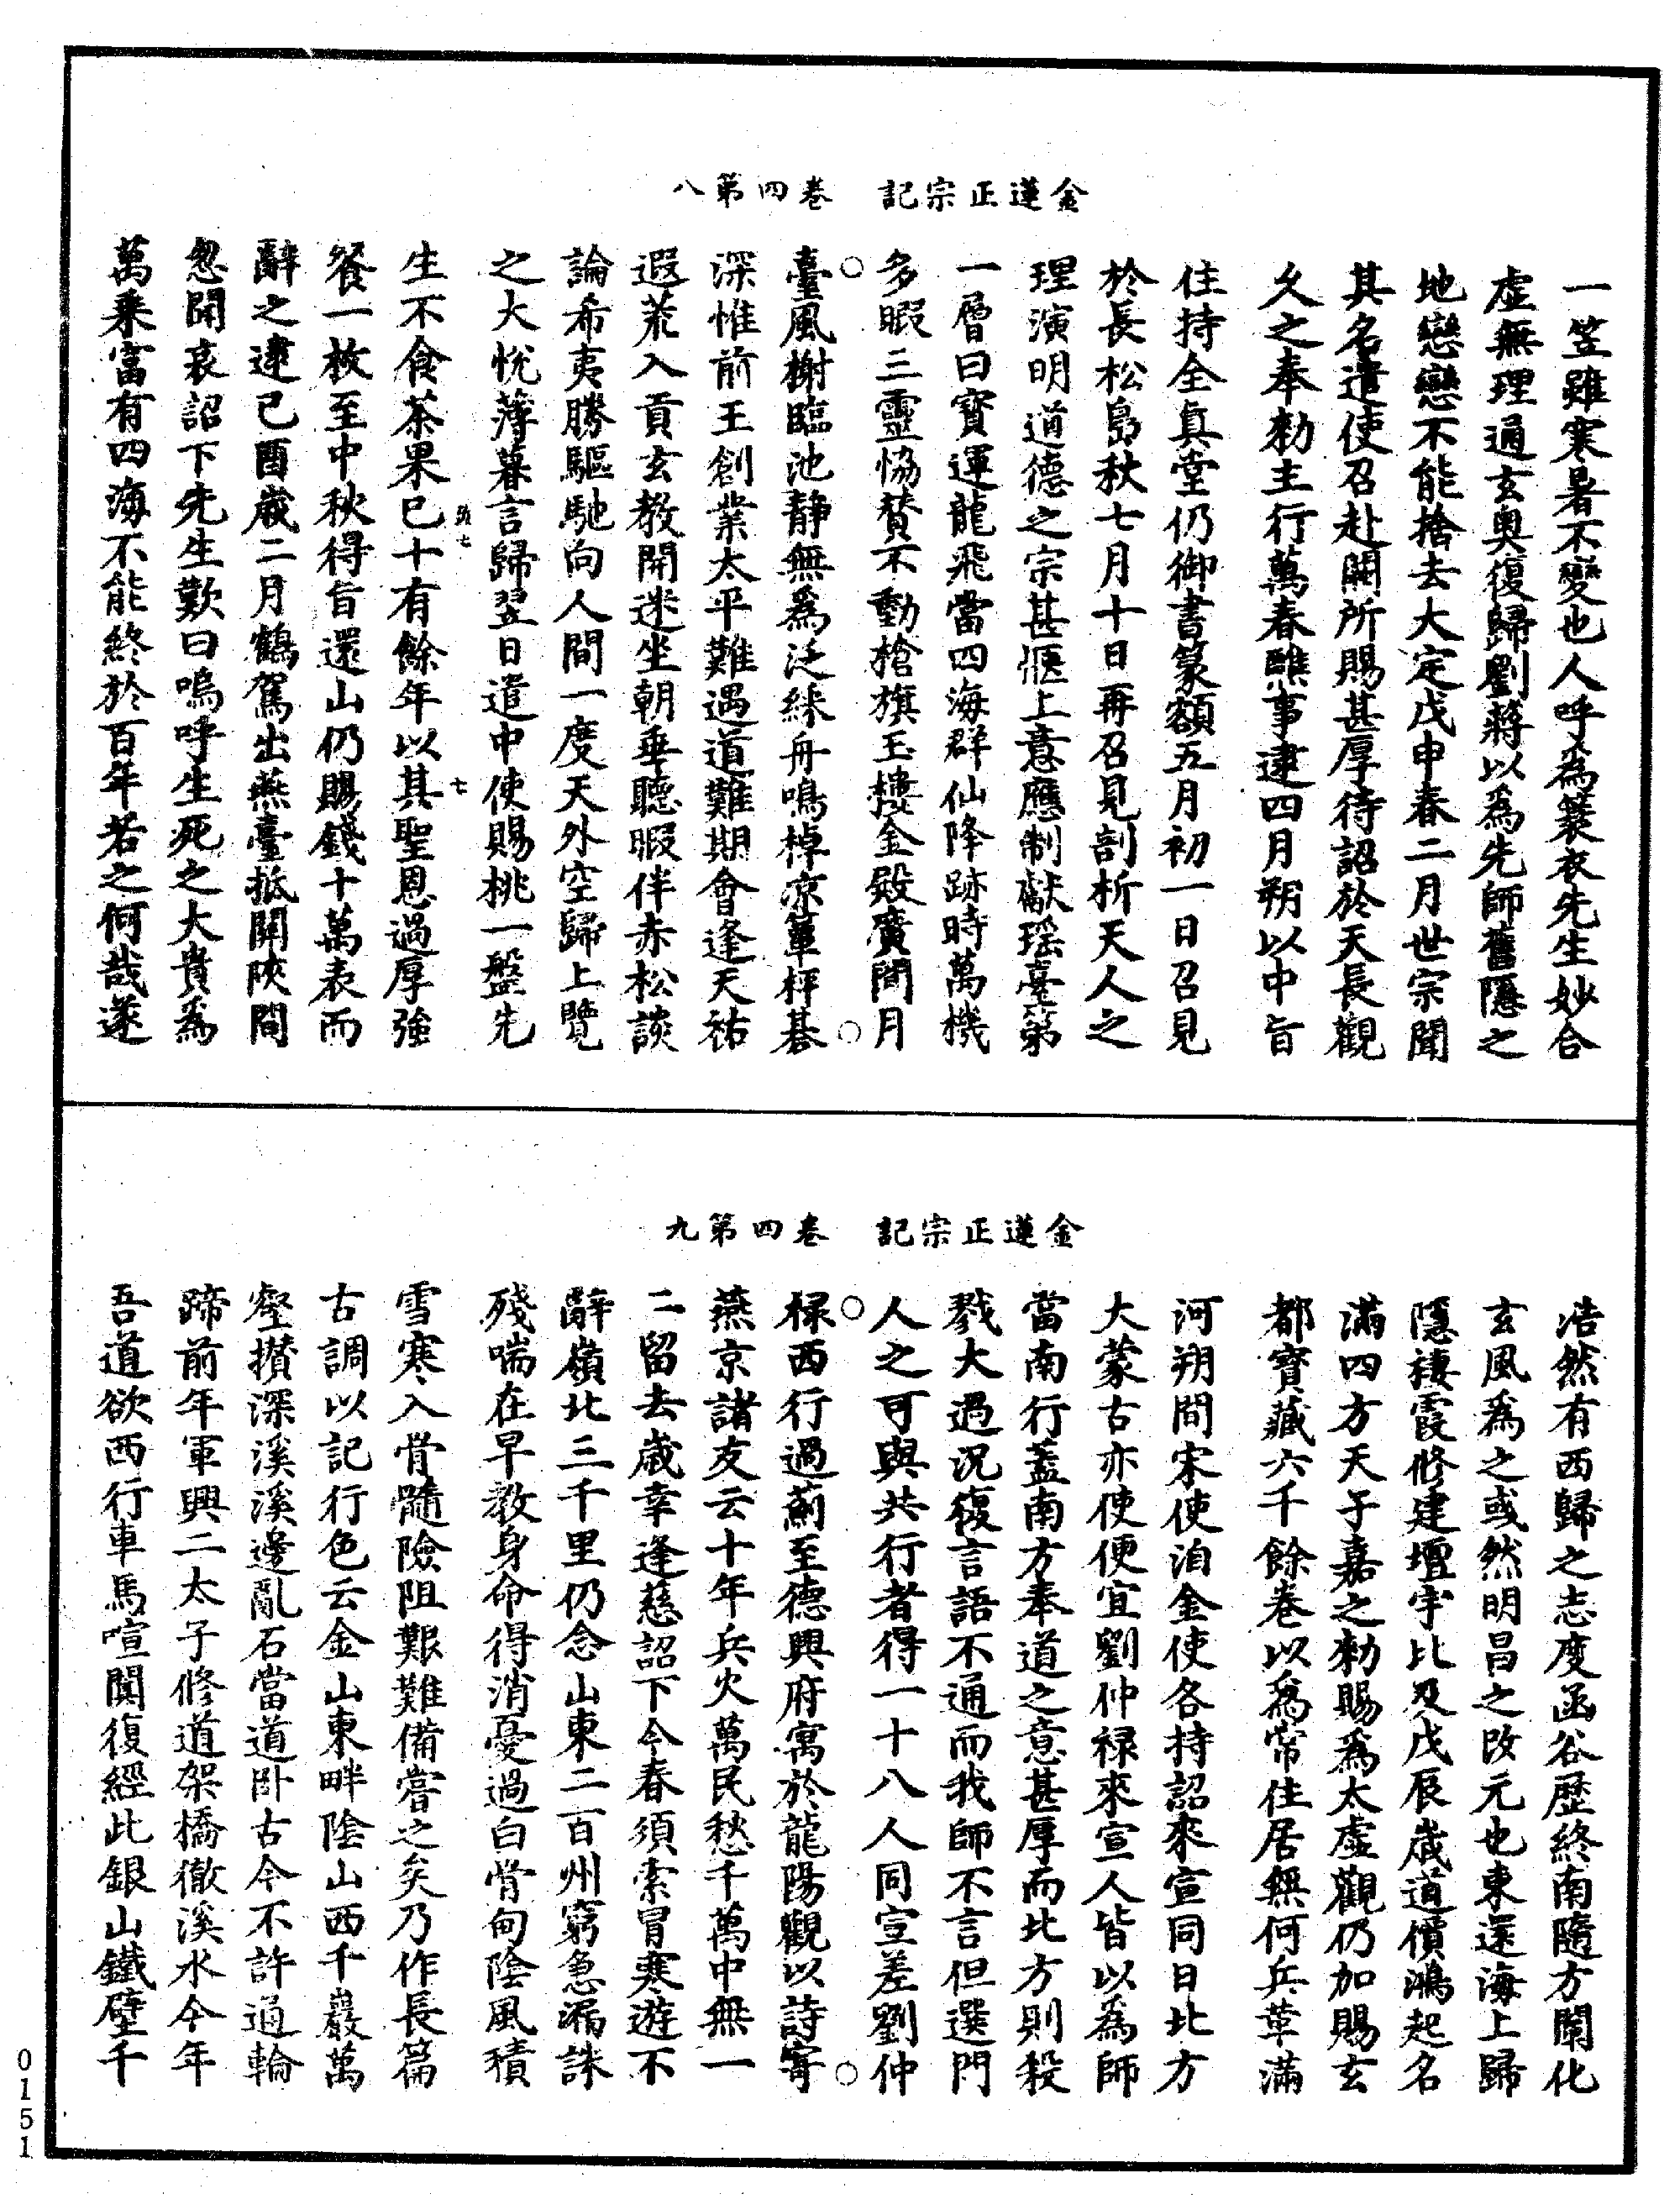 金蓮正宗記　卷四第八
一笠雖寒暑不變也人呼為蓑衣先生妙合
虛無理通玄奥復歸劉蔣以爲先師舊隱之
地戀戀不能捨去大定戊申春二月世宗聞
其名遣使召赴闕所賜甚厚待詔於天長觀
久之奉勑主行萬春醮事逮四月朔以中旨
住持全真堂仍御書篆額五月初一日召見
於長松島秋七月十日再召見剖析天人之
理演明道德之宗甚愜上意應制獻瑶臺第
一層曰寳運龍飛當四海群仙降跡時萬機
多暇三靈恊賛不動槍旗玉摟金殿廣間月
臺風榭臨池静無爲泛綵舟鳴棹凉簟枰碁
深惟前王創業太平難遇道難期會逢天祐
遐荒入貢玄教開迷坐朝垂聽暇伴赤松談
論希夷勝驅馳向人間一度天外空歸上覽
之大恱薄暮言歸翌日遣中使賜桃一盤先
生不食茶果已十有餘年以其聖恩過厚強
餐一枚至中秋得旨還山仍賜錢十萬表而
辭之逮己酉歲二月鶴駕出燕臺抵關陝間
忽聞哀詔下先生歎曰嗚呼生死之大貴爲
萬乗富有四海不能終於百年若之何哉遂
七
金蓮正宗記　卷四第九
浩然有西歸之志度函谷歷終南隨方闡化
玄風爲之或然明昌之改元也東還海上歸
隱棲霞修建壇宇比及戊辰歲道價鴻起名
滿四方天子嘉之勑賜爲太虛觀仍加賜玄
都寳藏六千餘卷以爲常住居無何兵革滿
河朔間宋使洎金使各持詔來宣同日北方
大蒙古亦使便宜劉仲禄來宣人皆以為師
當南行蓋南方奉道之意甚厚而北方則殺
戮大過況復言語不通而我師不言但選門
人之可與共行者得一十八人同宣差劉仲
禄西行過薊至德興府寓於龍陽觀以詩寄
燕京諸友云十年兵火萬民愁千萬中無一
二留去歲幸逢慈詔下今春須索冒寒遊不
辭嶺北三千里仍念山東二百州窮急漏誅
殘喘在早教身命得消憂過白骨甸陰風積
雪寒入骨髓險阻艱難備嘗之矣乃作長篇
古調以記行色云金山東畔陰山西千巖萬
壑攅深溪溪邊亂石當道卧古今不許通輪
蹄前年軍興二太子修道架橋徹溪水今年
吾道欲西行車馬喧闐復經此銀山鐵壁千
0151